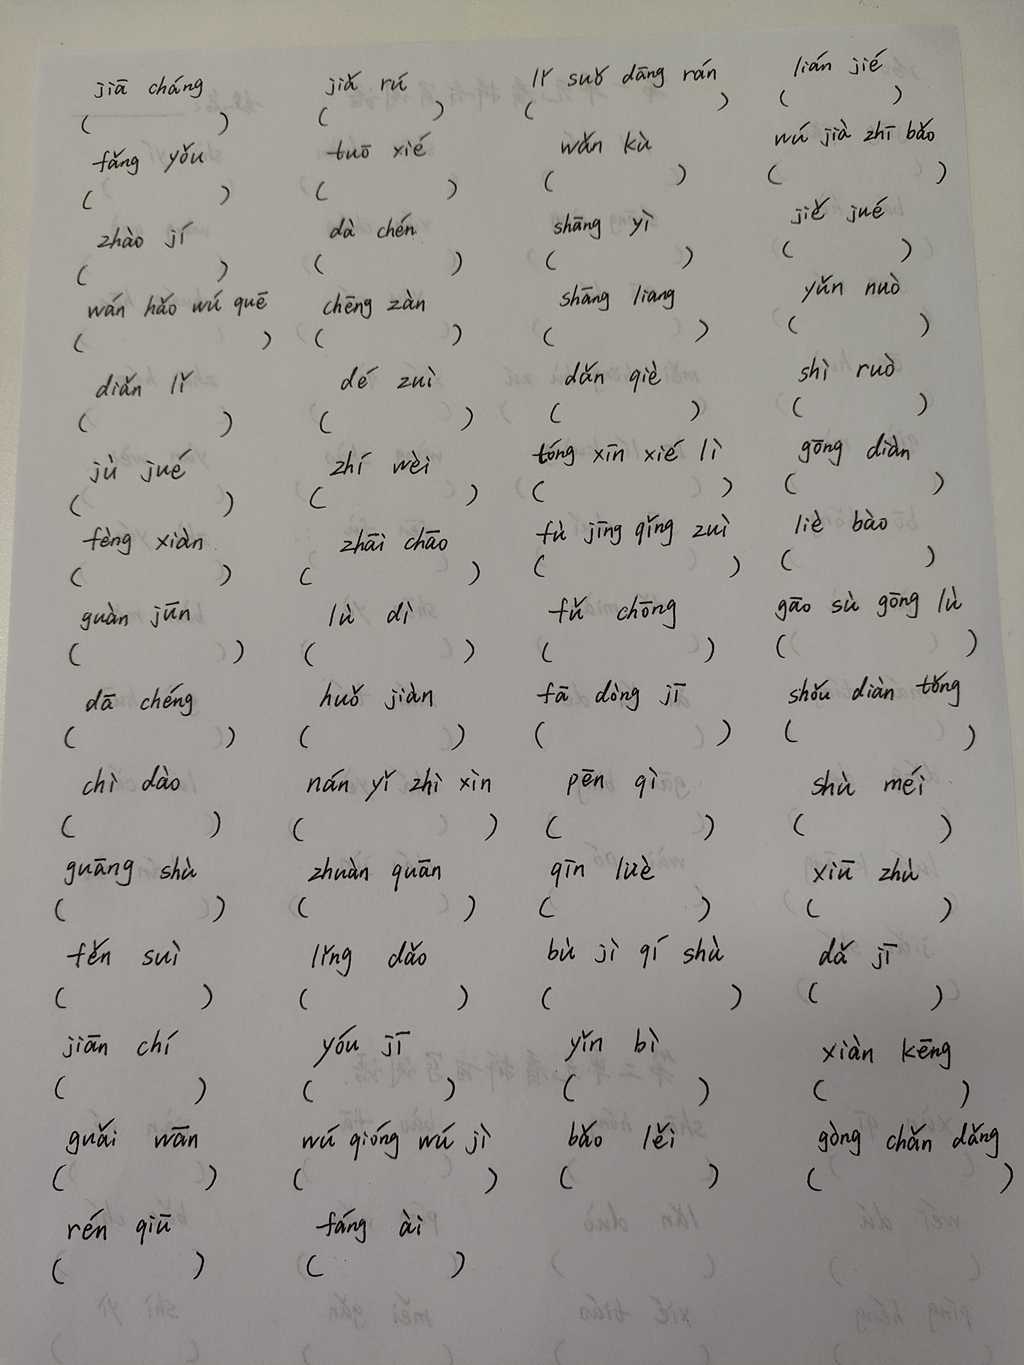 jiā cháng jiǎ rú lǐ suǒ dāng rán lián jié
( ) ( ) ( ) ( )
fǎng yǒu tuō xié wǎn kù wú jià zhī bǎo
( ) ( ) ( ) ( )
zhào jí dà chén shāng yì jiě jué
( ) ( ) ( ) ( )
wán hǎo wú quē chēng zàn shāng liang yǔn nuò
( ) ( ) ( ) ( )
diǎn lǐ dé zuì dǎn qiè shì ruò
( ) ( ) ( ) ( )
jù jué zhí wèi tóng xīn xié lì gōng diàn
( ) ( ) ( ) ( )
fèng xiàn zhāi chāo fù jīng qǐng zuì liè bào
( ) ( ) ( ) ( )
guàn jūn lù dì fǔ chōng gāo sù gōng lù
( ) ( ) ( ) ( )
dā chéng huǒ jiàn fā dòng jī shǒu diàn tǒng
( ) ( ) ( ) ( )
chì dào nán yǐ zhì xìn pēn qì shù méi
( ) ( ) ( ) ( )
guāng shù zhuàn quān qīn lüè xiū zhù
( ) ( ) ( ) ( )
fěn suì lǐng dǎo bù jì qí shù dǎ jī
( ) ( ) ( ) ( )
jiān chí yóu jī yǐn bì xiàn kēng
( ) ( ) ( ) ( )
guǎi wān wú qióng wú jì bǎo lěi gòng chǎn dǎng
( ) ( ) ( ) ( )
rén qiū fáng ài
( ) ( )